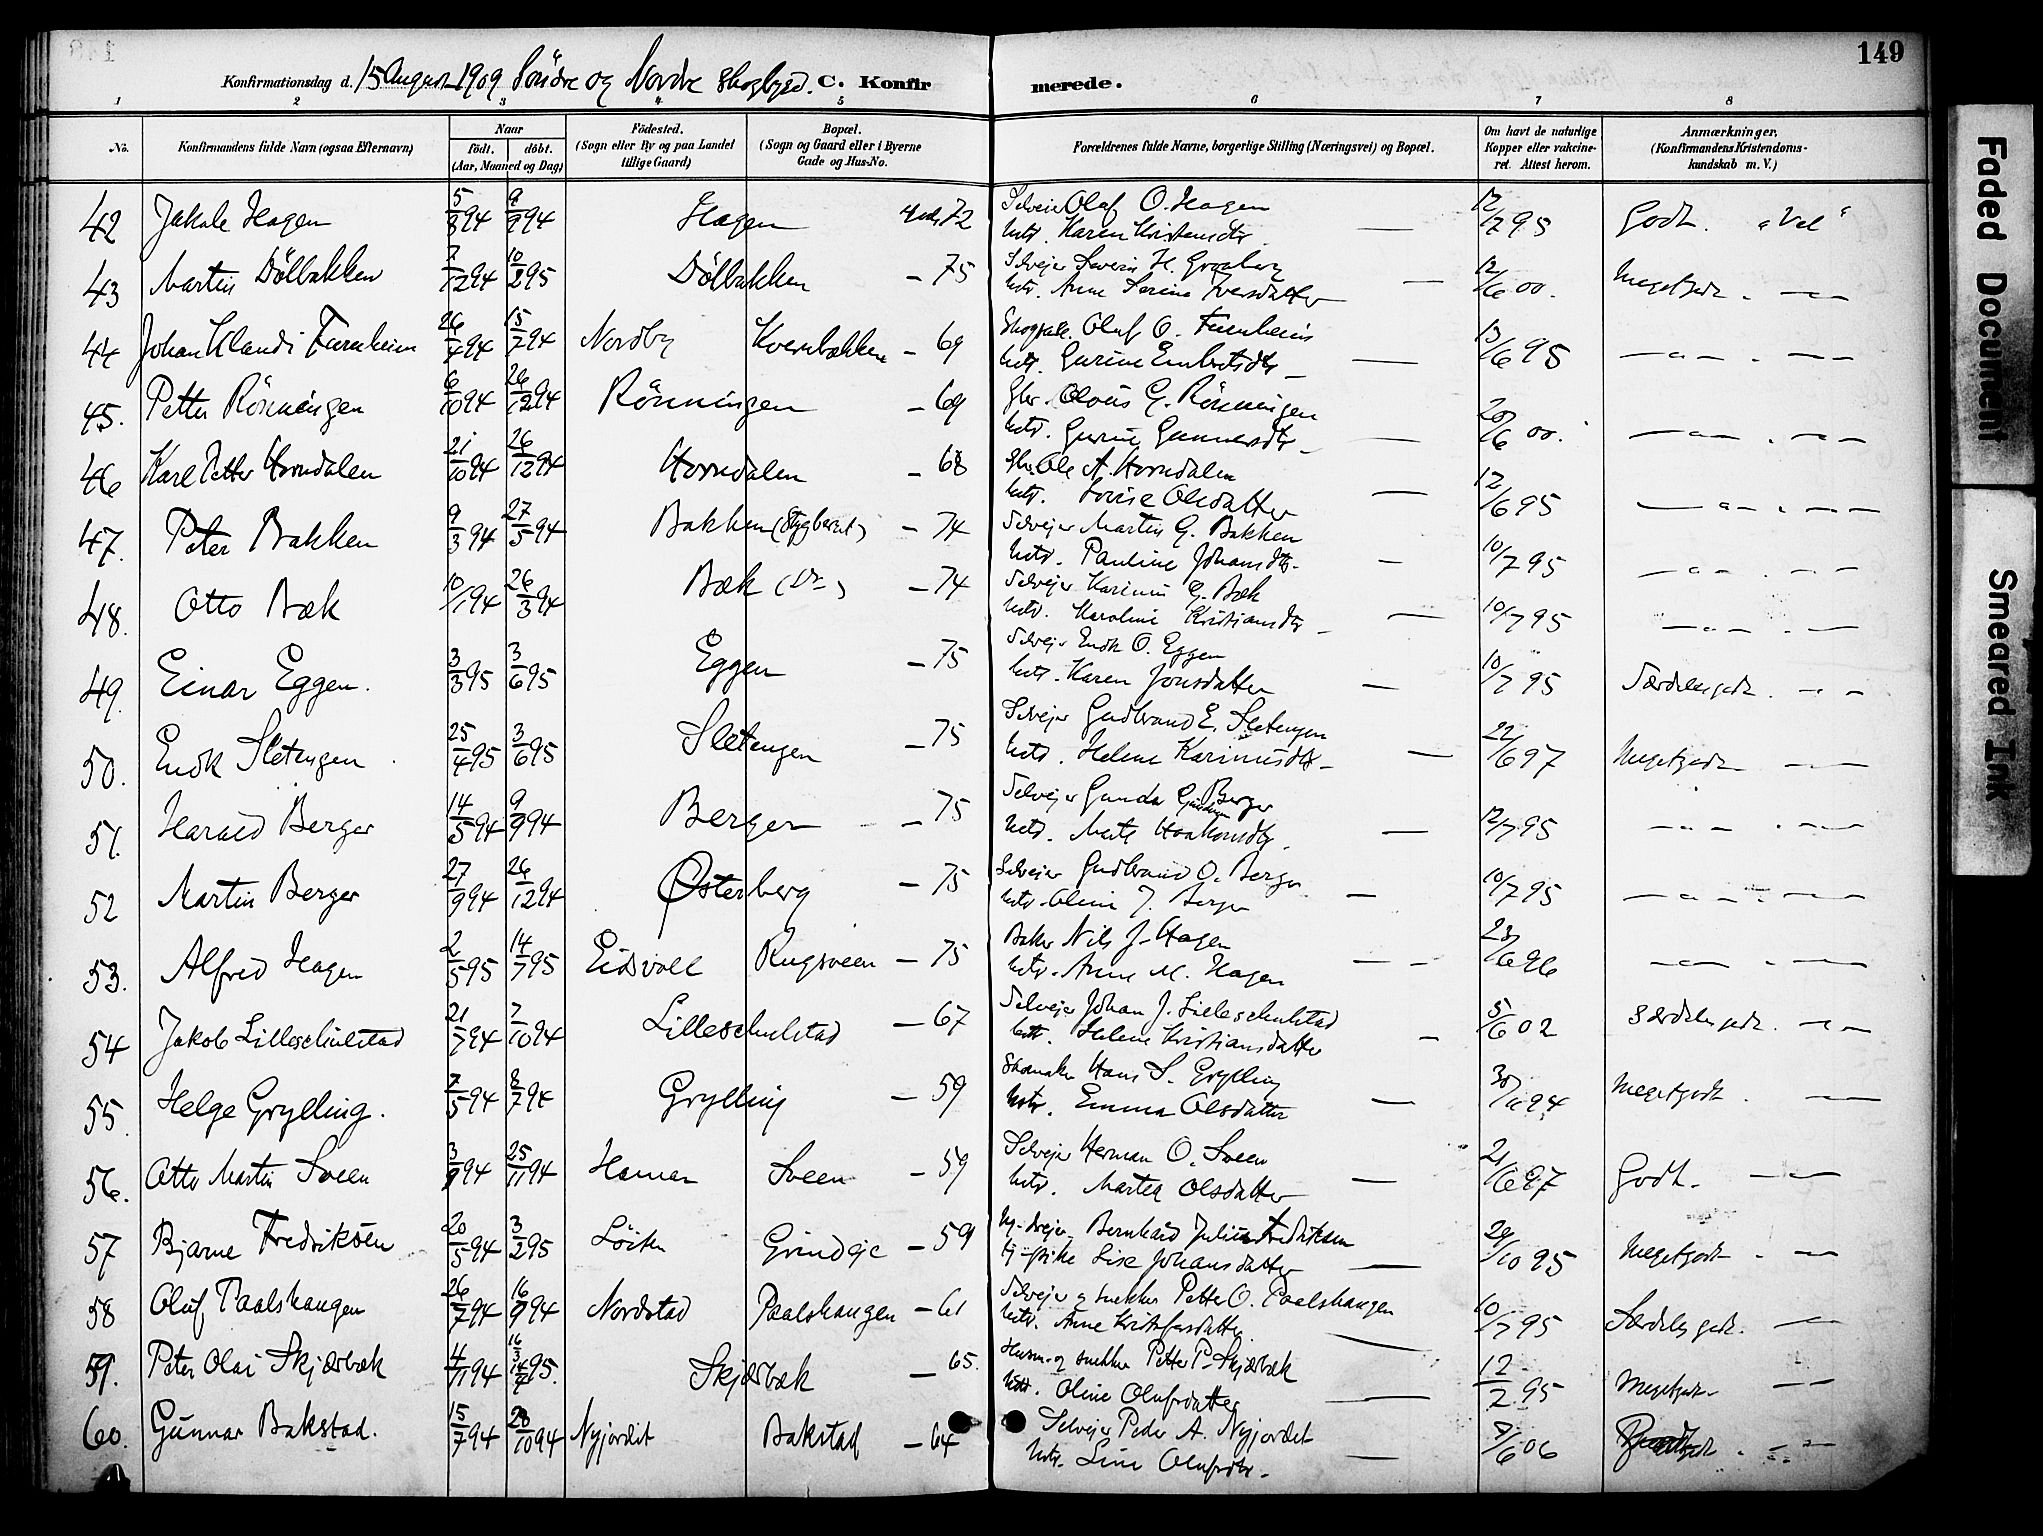 149
Konfirmationsdag d. 15 August 1909 Søndre og Nordre Skogbygd. C. Konfirmerede.
1 2 3 4 5 6 7 8
No. Konfirmandens fulde Navn (ogsaa Efternavn) Naar födt. döbt. (Aar, Maaned og Dag) Födested. (Sogn eller By og paa Landet tillige Gaard) Bopæl. (Sogn og Gaard eller i Byerne Gade og Hus-No. Forældrenes fulde Navne, borgerlige Stilling (Næringsvei) og Bopæl. Om havt de naturlige Kopper eller vakcineret. Attest herom. Anmærkninger. (Konfirmandens Kristendomskundskab m. V.)
42 Jakob Hagen 5/8 94 9/9 94 Hagen 72 Selveier Olaf O. Hagen 12/7 95 Godt. "Vel"
Hstr. Karen Kristensdtr —
43 Martin Dölbakken 7/12 94 10/2 95 Dölbakken – 75 Selvejer Severin H. Grønberg 12/6 00. Megetgodt. — " —
Hstr. Anne Serine Iversdatter —
44 Johan Klandi Furuheim 26/4 94 15/7 94 Nordby Kvernbakken – 69 Oluf O. Furuheim 13/6 95 — " — . — " —
Hstr. Gurine Embretsdtr —
45. Petter Rönningen 6/10 94 26/12 94 Rönningen – 69 Gbr. Olaus G. Rönningen 20/6 00. — " — . — " —
Hstr. Gurine Gunnersdtr —
46 Karl Petter Horndalen 21/10 94 26/12 94 Horndalen – 68 Gbr. Ole A. Horndalen 12/6 95 — " — . — " —
Hstr. Lovise Olsdatter —
47. Peter Bakken 9/3 94 27/5 94 Bakken (Stygberget) – 74 Selvejer Martin G. Bakken 10/7 95 — " — . — " —
Hstr. Pauline Johansdtr. —
48. Otto Bæk 10/1 94 26/3 94 Bæk (Do) – 74 Selvejer Karinus G. Bæk 10/7 95 — " — . — " —
Hstr. Karoline Kristiansdtr —
49. Einar Eggen. 3/3 95 3/6 95 Eggen – 75 Selvejer Endre O. Eggen 10/7 95 Særdelesgodt. — " —
Hstr. Karen Jonsdatter —
50. Endre Sletengen 25/4 95 3/6 95 Sletengen – 75 Selvejer Gudbrand E. Sletengen 22/6 97 Megetgodt — " —
Hstr. Helene Karinusdtr —
51. Harald Berger 14/5 94 9/9 94 Bergen – 75 Selvejer Gunder Gundersen Berger 12/7 95 — " — . — " —
Hstr. Marte Haakonsdtr —
52 Martin Berger 27/9 94 26/12 94 Østerberg – 75 Selveier Gudbrand O. Berger 10/7 95 — " — . — " —
Hstr. Oline J. Berger —
53. Alfred Hagen 2/5 95 14/7 95 Eidsvoll Rugsveen – 75 Baker Nils J. Hagen 23/6 96 — " — . — " —
Hstr. Anne M. Hagen — —
54 Jakob Lilleschulstad 21/7 94 7/10 94 Lilleschulstad – 67 Selvejer Johan J. Lilleschulstad 5/6 02 Særdelesgodt. — " —
Hstr. Helene Kristiansdatter —
55. Helge Grylling. 7/5 94 8/7 94 Grylling – 59 Skomaker Hans S. Grylling 94 Megetgodt. — " —
Hstr. Emma Olsdatter —
56. Otto Martin Sveen 3/9 94 25/11 94 Hamar Sveen – 59 Selvejer Herman O. Sveen 21/6 97 Godt. — " —
Hstr. Marthe Olsdatter —
57 Bjarne Fredriksen 20/5 94 3/2 95 Löiten Grindeje – 59 Bernhard Julius Fredriksen 29/10 95 Megetgodt. — " —
Lise Johansdatter —
58 Oluf Paalshaugen 26/7 94 16/9 94 Nordstad Paalshaugen – 61 Selvejer og snekker Petter O. Paalshaugen 10/7 95 Særdelesgodt. — " —
Hstr. Anne Kristofersdatter —
59. Peter Olai Skjærbæk 4/11 94 16/3 14/4 95. Skjærbæk – 65. Husm. og snekker Petter P. Skjærbæk 12/7 95 Megetgodt. — " —
Hstr. Oline Olufsdatter —
60. Gunnar Bakstad. 15/7 94 28/10 94 Nyjordet Bakstad – 64 Selvejer Peder A. Nyjordet 7/6 06 godt. — " —
Hstr. Line Olufsdtr. —
Faded Document
Smeared Ink